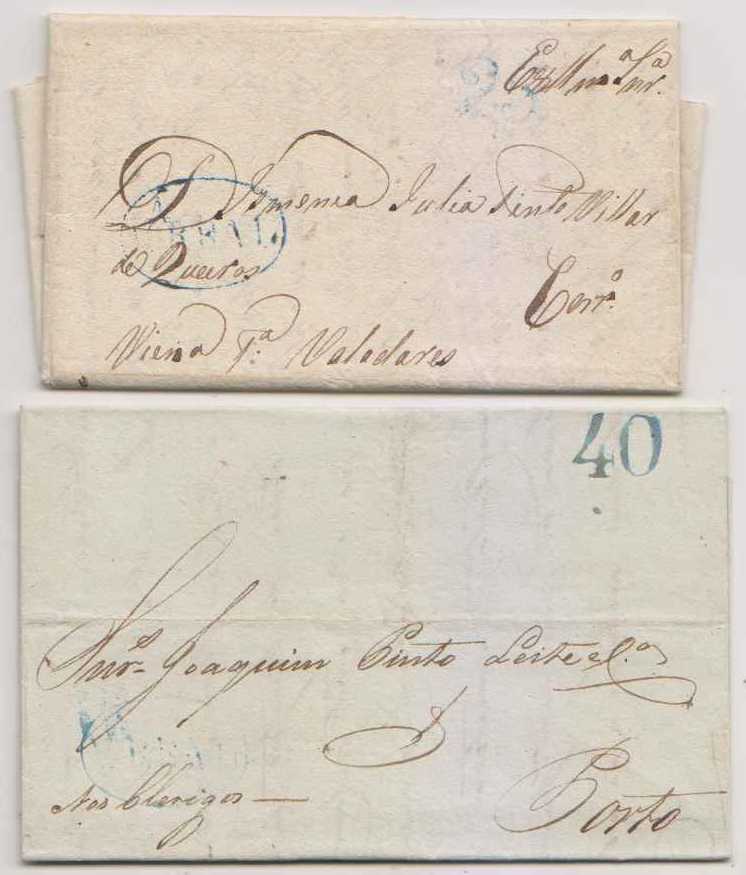 Exma Sra
D. Ismenia Julia Pinto Villar
de Queiros
Viena Pa. Valadares
40
Snrs. Joaquim Pinto Leite e Ca
Nos Clerigos — Porto